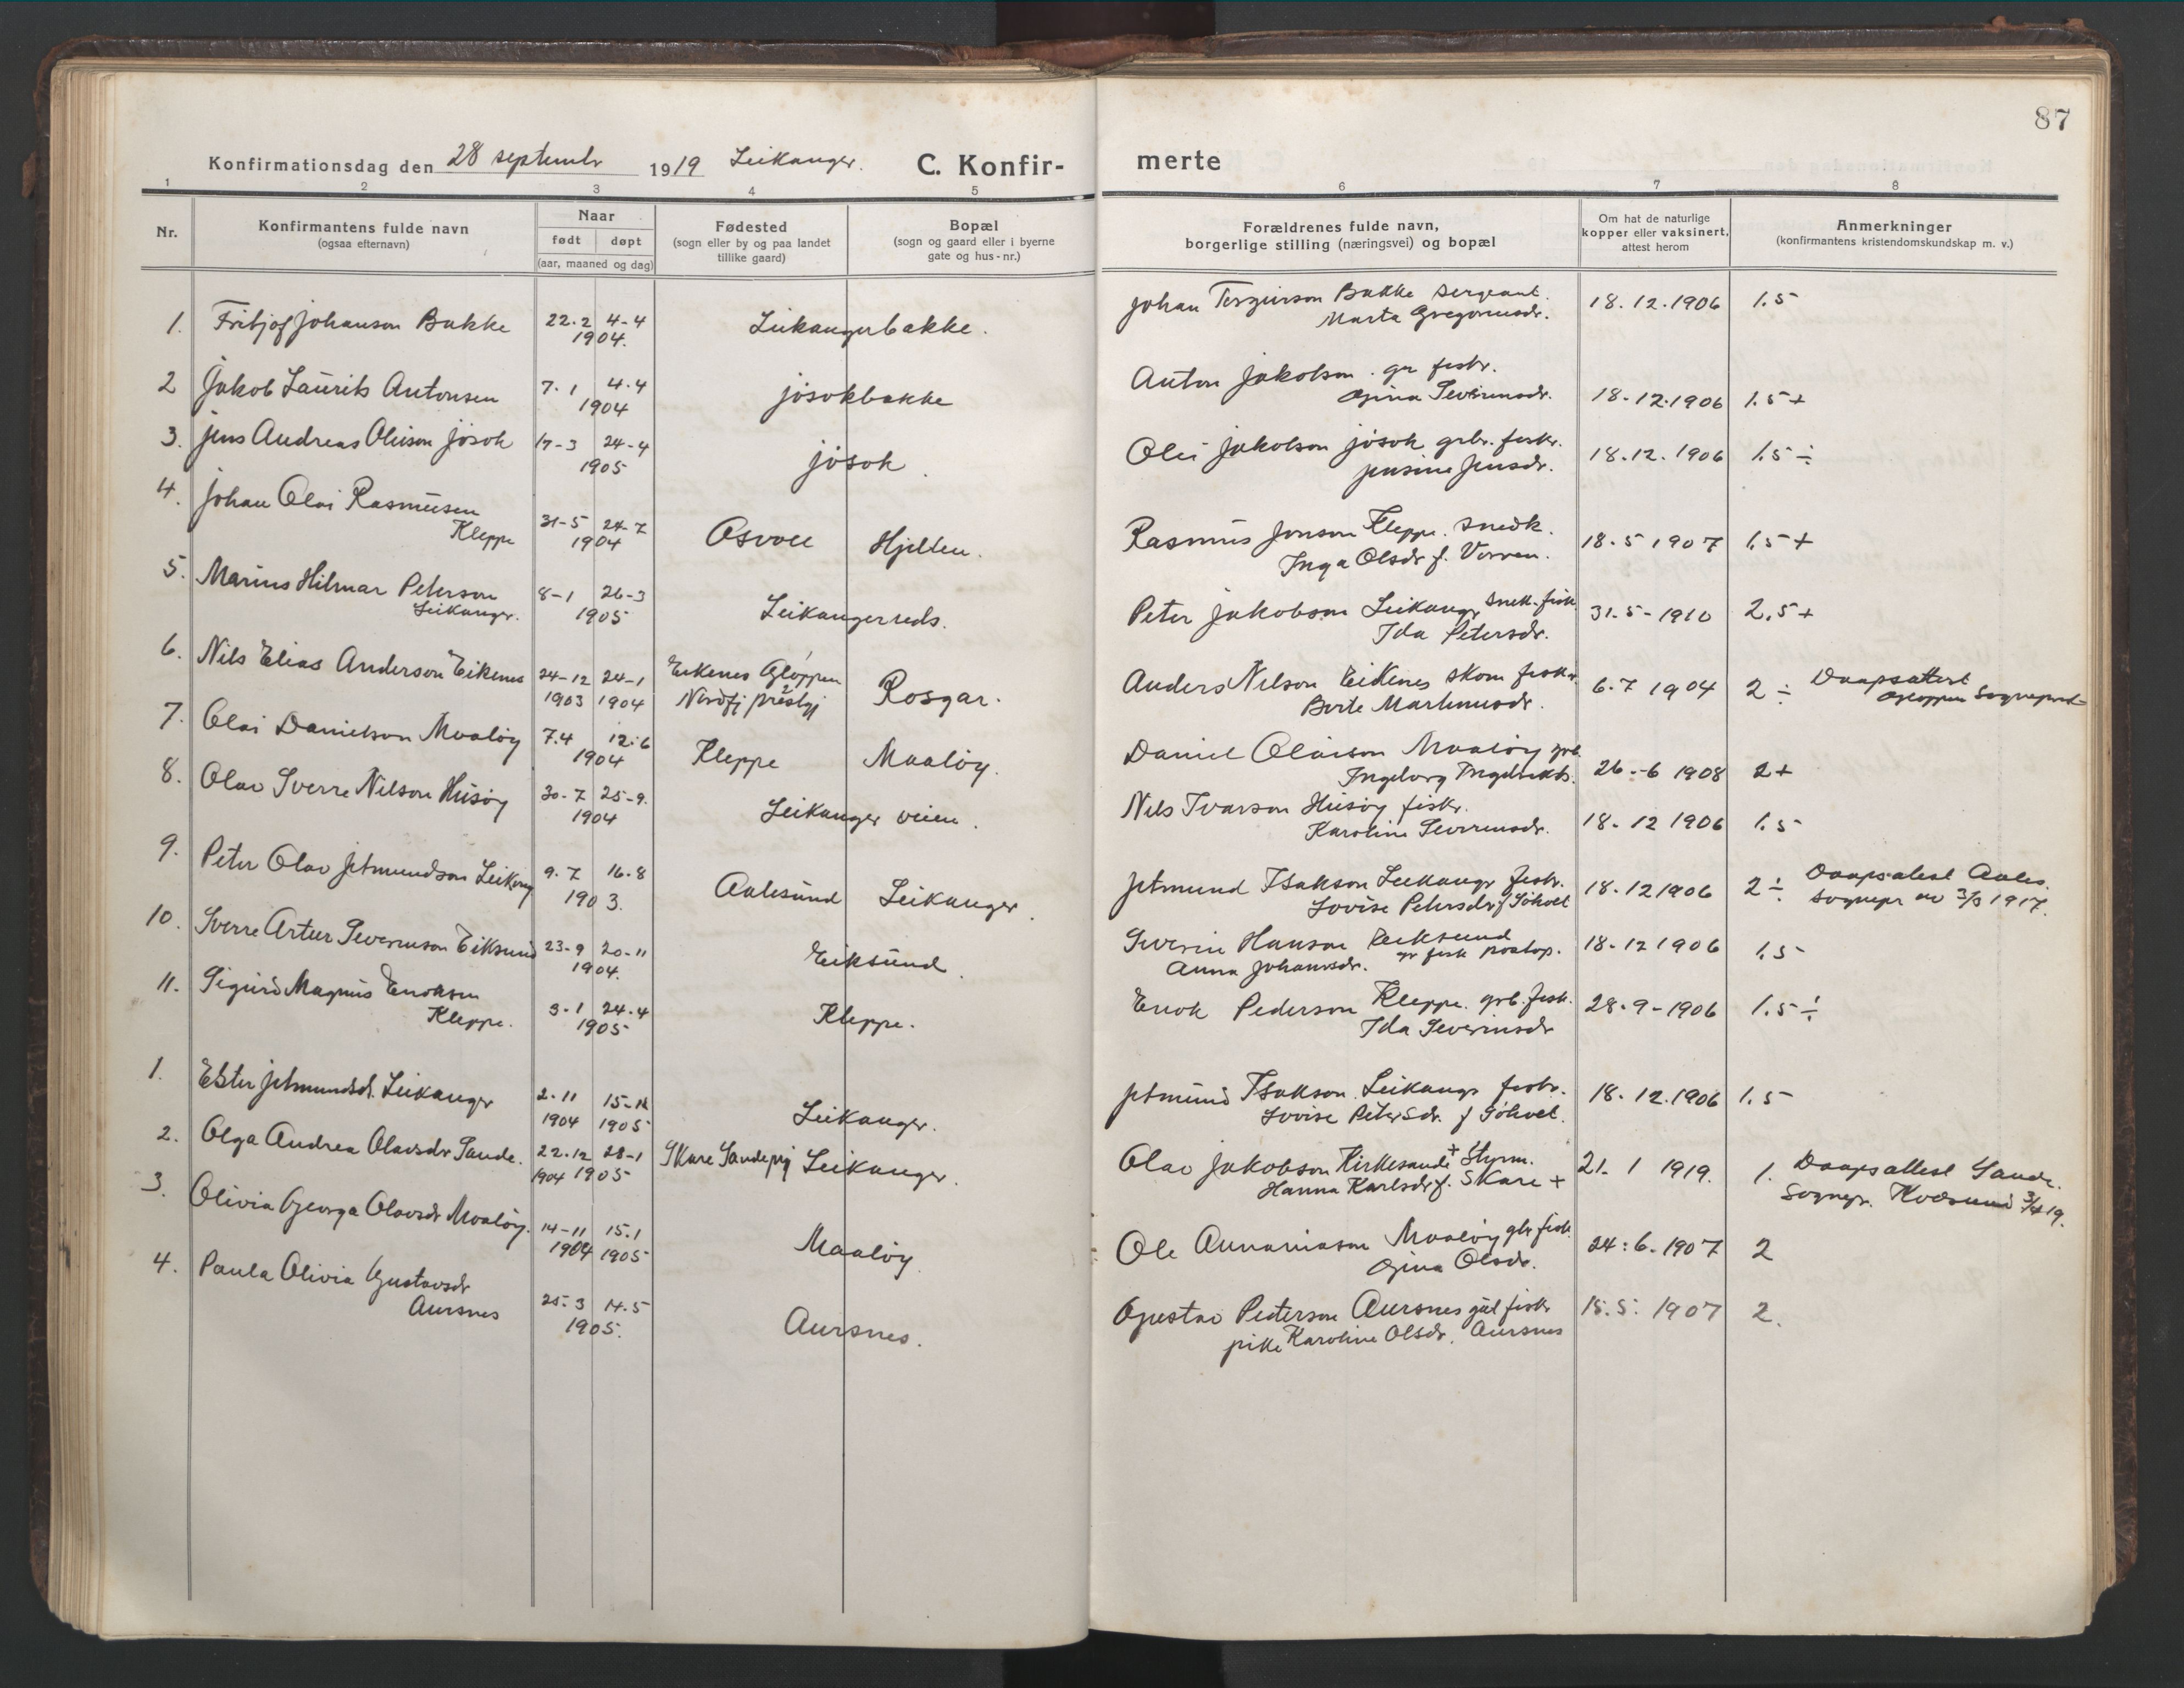 87
Konfirmationsdag den 28 septembr 1919 Leikanger. C. Konfir- merte
1 2 3 4 5 6 7 8
Nr.
Konfirmantens fulde navn
(ogsaa efternavn)
Naar
født døpt
(aar, maaned og dag)
Fødested
(sogn eller by og paa landet
tillike gaard)
Bopæl
(sogn og gaard eller i byerne
gate og hus-nr.)
Forældrenes fulde navn,
borgerlige stilling (næringsvei) og bopæl
Om hat de naturlige
kopper eller vaksinert,
attest herom
Anmerkninger
(konfirmantens kristendomskundskap m. v.)
1. Fritjof Johanson Bakke 22.2 4-4 Leikangerbakke. Johan Bakke sergeant. 18.12.1906 1.5
1904. Marta Gregoriusdr.
2 Jakob Laurits Antonsen 7.1 4.4 jösokbakke Anton Jakobson gr fiskr. 18.12.1906 1.5+
1904 Gina Severinsdr.
3. Jens Andreas Oleison Jösok 17-3 24-4 jösok. Olei Jakobson jösok grbr. fiskr. 18.12.1906 1.5÷
1905 Jensine Jensdr.
4. Johan Olai Rasmusen
Kleppe 31-5 24-7 Osvoll Hjelten. Rasmus Jonson Kleppe. snedk. 18.5 1907 1,5+
1904 Inga Olsdr f. Vorren.
5. Marius Hilmar Peterson
Leikanger. 8-1 26-3 Leikangerreds. Peter Jakobson Leikangr snek. fisk 31.5-1910 2,5+
1905 Ida Petersdr.
6. Nils Elias Anderson Eikenes 24-12 24-1 Eikenes Gloppen Rosgar. Anders Nilson Eikenes skom fiskr. 6.7 1904 2÷ Daapsattest
1903 1904 Nordfj prestgj Berte Martinusdr. Gloppen Sogneprest
7. Olai Danielson Maalöy 7.4 12.6 Kleppe Maalöy. Daniel Olaison Maalöy grb. 26.-6 1908 2+
1904 Ingeborg Ingebrikts.
8. Olav Sverre Nilson Husöy 30-7 25-9. Leikanger veien. Nils Ivarson Husöy fiskr. 18.12 1906 1.5
1904 Karoline Severinsdr.
9. Peter Olav Jetmundson Leikang 9.7 16.8 Aalesund Leikanger. Jetmund Isakson Leikangr fiskr. 18.12 1906 2÷ Daapsatest Aales.
1903. Lovise Petersdr f Söhvel sognepr av 3/3 1917.
10. Sverre Artur Severinson Eiksund 23-9 20-11 Eiksund. Severin Hanson Eeiksund 18.12 1906 1.5
1904. Anna Johansdr. gr fisk postop.
11. Sigurd Magnus Enokson
Kleppe. 3-1 24.4 Kleppe. Enok Pederson Kleppe. grb. fisk. 28.9-1906 1.5÷
1905 Ida Severinsdr
1. Ester Jetmundsd. Leikanger 2.11 15-11 Leikanger. Jetmund Isakson Leikangr fiskr. 18.12.1906 1.5
1904 1905 Lovise Petersdr. f Söhvel.
2. Olga Andrea Olavsdr Sande. 22.12 28-1 Skare Sandeprg Leikanger. Olav Jakobson Kirkesande + Styrm. 21. 1 1919. 1. Daapsattest Sande.
1904 1905 Hanna Karlsdr f. Skare + Sognepr. 3/4 19.
3. Olivia Georga Olavsdr Maalöy. 14-11 15.1 Maalöy Ole Annaniason Maalöy gbr fisk. 24.6.1907 2
1904 1905 Gina Olsdr.
4. Paula Olivia Gustavsdr
Aursnes 25.3 14.5 Aursnes. Gustav Pederson Aursnes fiskr 15.5. 1907 2.
1905. pike Karoline Olsdr. Aursnes